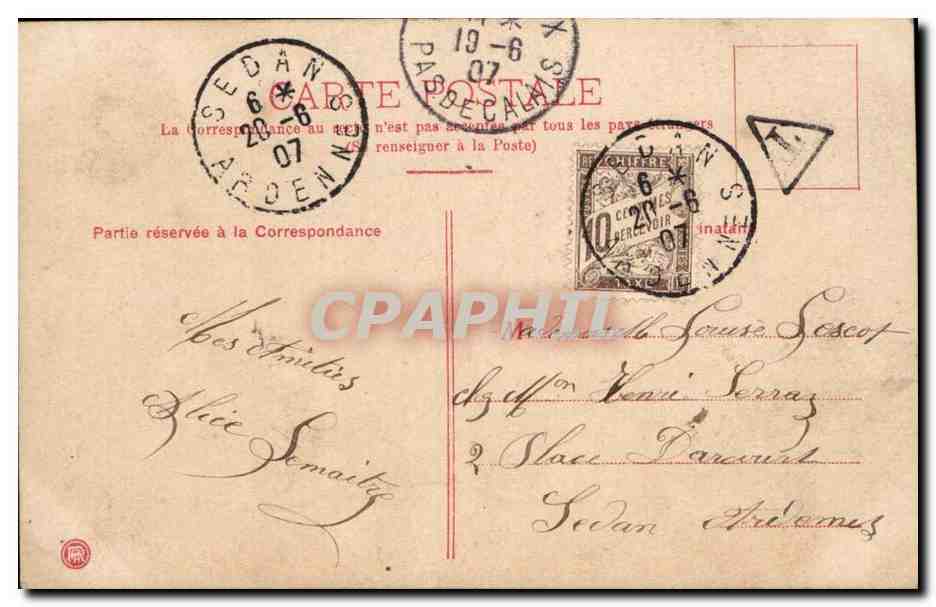 CARTE POSTALE
La Correspondance au recto n'est pas acceptée par tous les pays étrangers
(Se renseigner à la Poste)
SEDAN ARDENNES
6 *
20 -6
07
19 -6
07
PAS DE CALAIS
T
CHIFFRE
10 CENTIMES
A PERCEVOIR
TAXE
SEDAN ARDENNES
6 *
20 -6
07
Partie réservée à la Correspondance
Mes Amitiés
Alice Lemaitre
CPAPHIL
Mademoiselle Louise
chez Mon Henri
2 Place
Sedan Ardennes